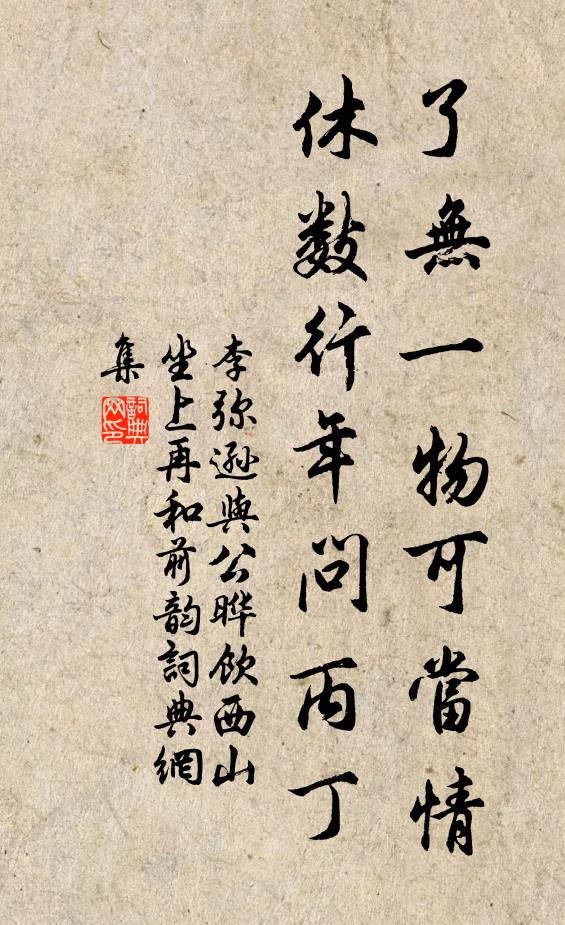 了無一物可當情
休數行年問丙丁
李弥遜與公晔飲西山
坐上再和前韵詞典網
集
詞典網印